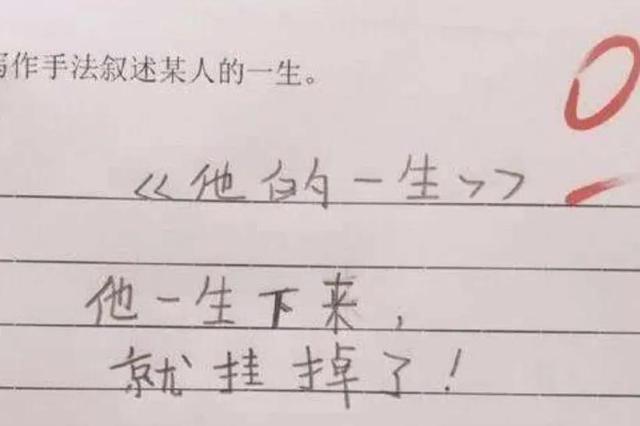 写作手法叙述某人的一生。
0
《他的一生》
他一生下来，
就挂掉了！